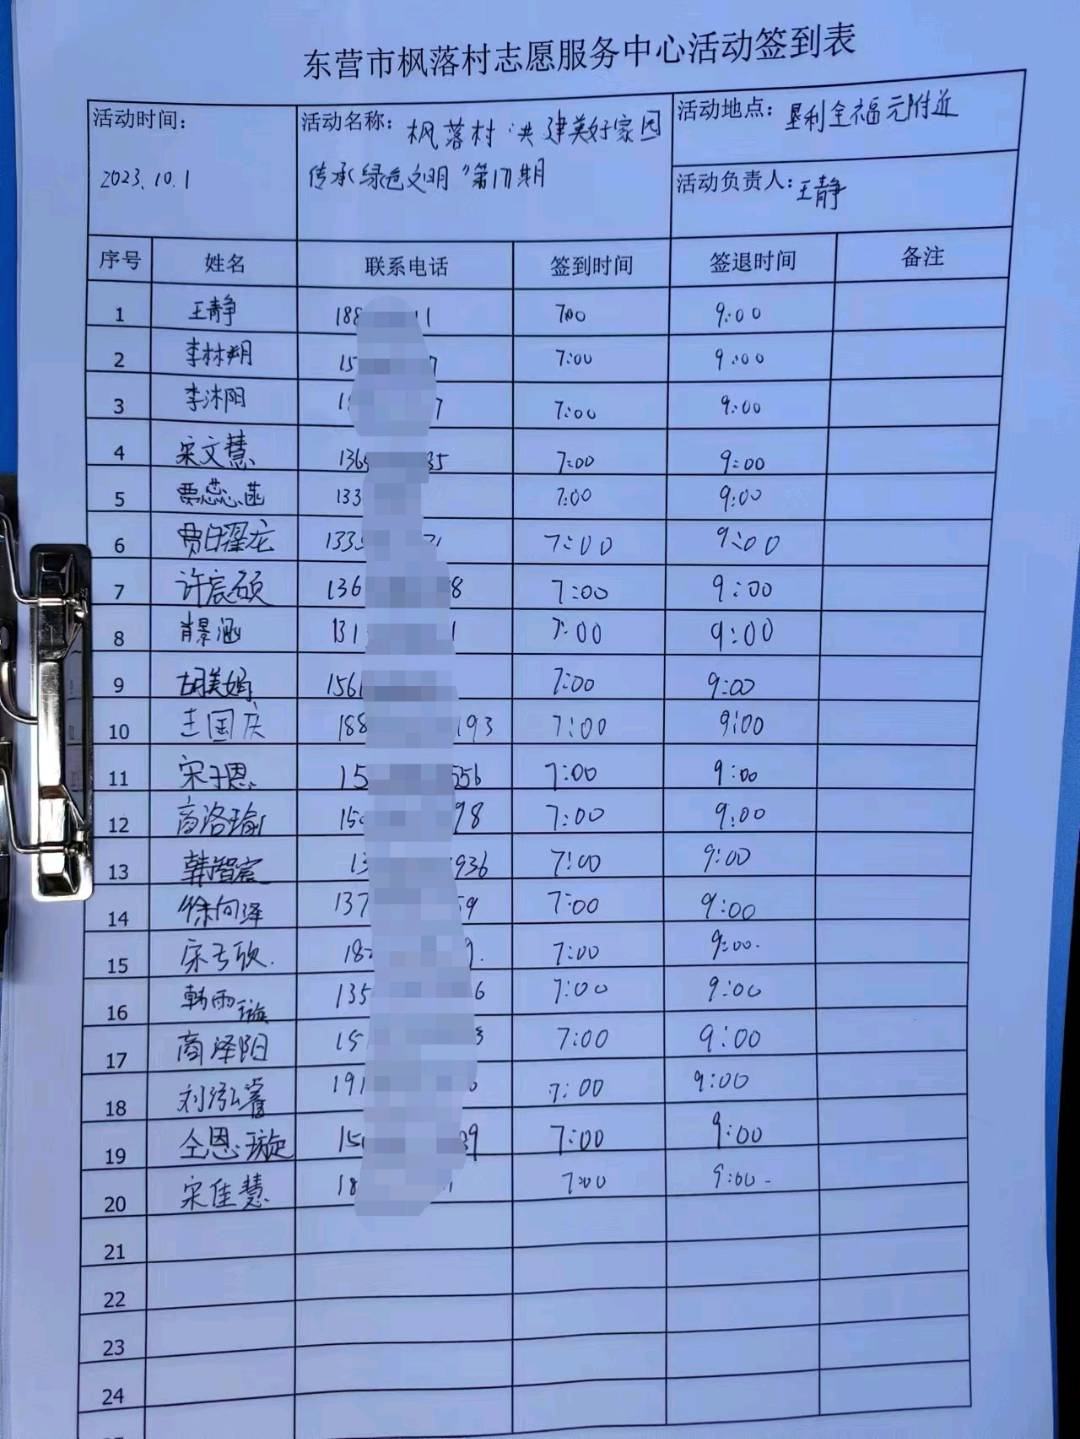 东营市枫落村志愿服务中心活动签到表
活动时间：
2023.10.1
活动名称：枫落村“共建美好家园
传承绿色文明”第17期
活动地点：垦利全福元附近
活动负责人：王静
序号 姓名 联系电话 签到时间 签退时间 备注
1 王静 188 11 7:00 9:00
2 李林翔 15 7 7:00 9:00
3 李沐阳 1 7 7:00 9:00
4 宋文慧 136 35 7:00 9:00
5 贾蕊菡 133 7:00 9:00
6 1335 7:00 9:00
7 许宸硕 136 8 7:00 9:00
8 肖景涵 131 1 7:00 9:00
9 胡美嫣 1561 7:00 9:00
10 王国庆 188 193 7:00 9:00
11 宋子恩 15 556 7:00 9:00
12 商洛瑜 150 98 7:00 9:00
13 韩智宸 13 936 7:00 9:00
14 徐向泽 137 59 7:00 9:00
15 18 9. 7:00 9:00.
16 韩雨璇 135 6 7:00 9:00
17 商泽阳 151 3 7:00 9:00
18 刘泓睿 191 7:00 9:00
19 仝恩璇 150 39 7:00 9:00
20 宋佳慧 18 1 7:00 9:00.
21
22
23
24